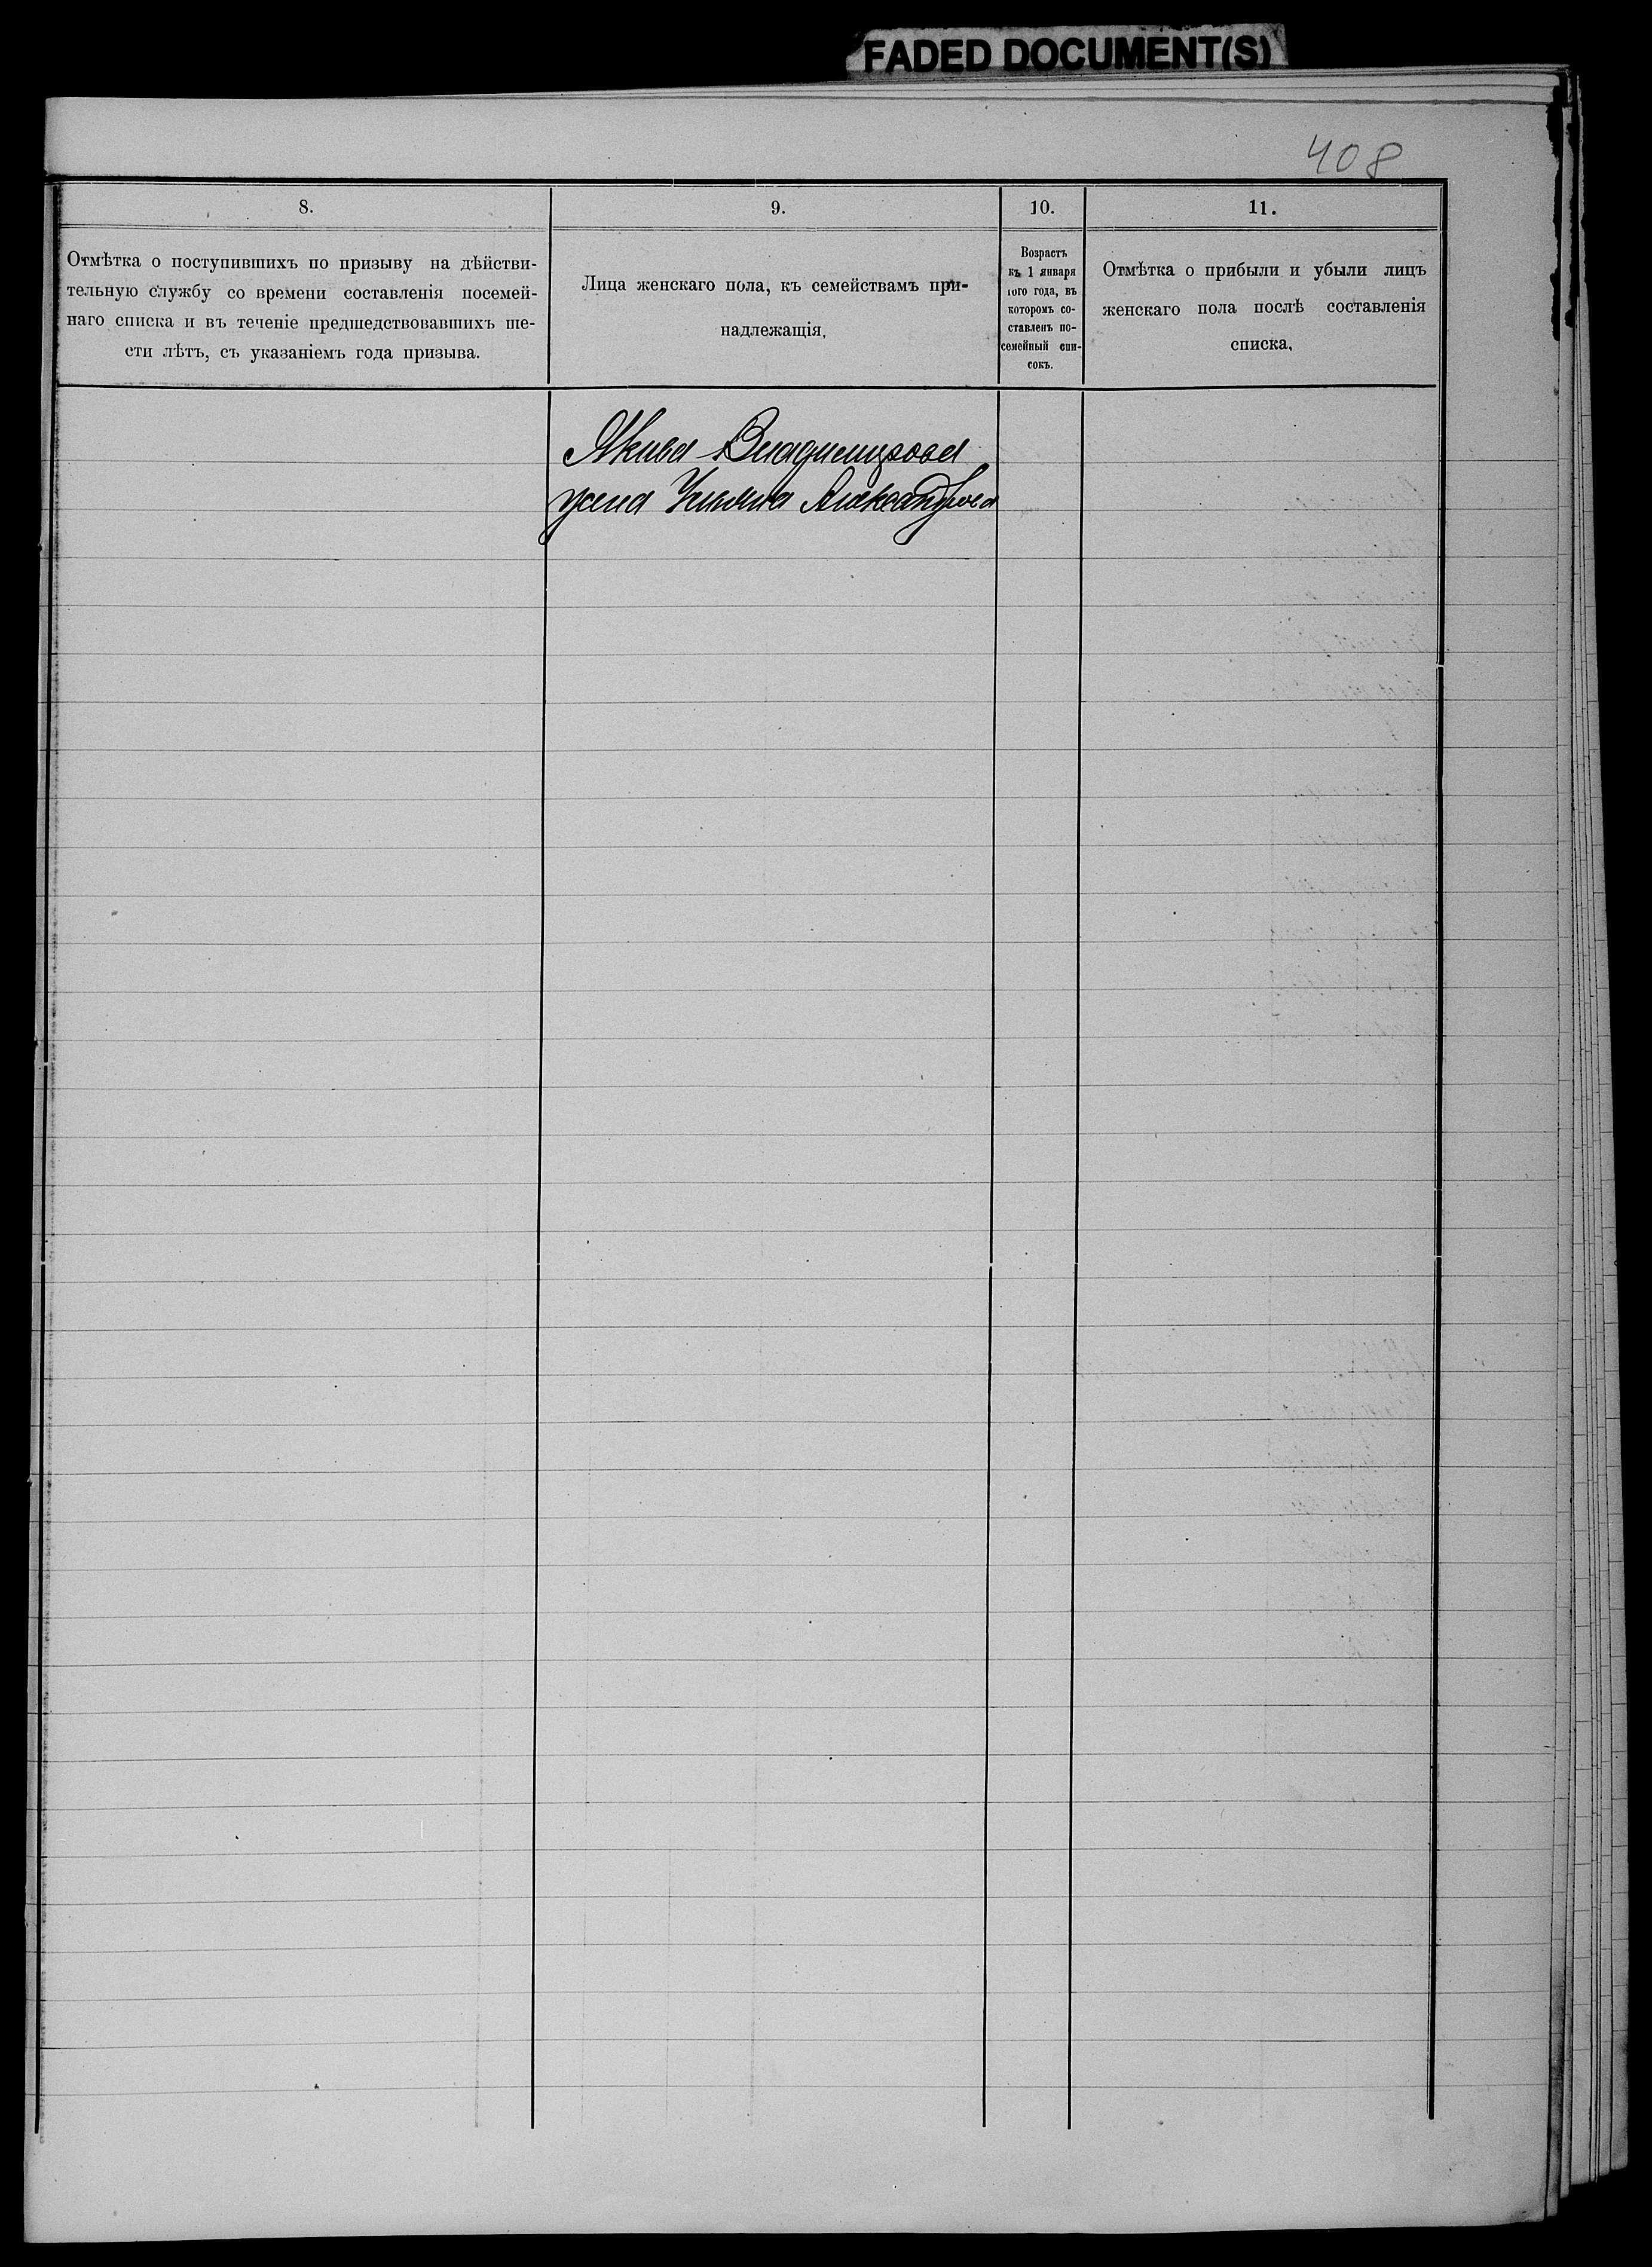 FADED DOCUMENT(S)
408
8.
Отмѣтка о поступившихъ по призыву на дѣйстви-
тельную службу со времени составленія посемей-
наго списка и въ теченіе предшедствовавшихъ ше-
сти лѣтъ, съ указаніемъ года призыва.
9.
Лица женскаго пола, къ семействамъ при-
надлежащія.
10.
Возрастъ
къ 1 января
того года, въ
которомъ со-
ставленъ по-
семейный спи-
сокъ.
11.
Отмѣтка о прибыли и убыли лицъ
женскаго пола послѣ составленія
списка.
Якима Владимірова
жена Ульяна Александрова